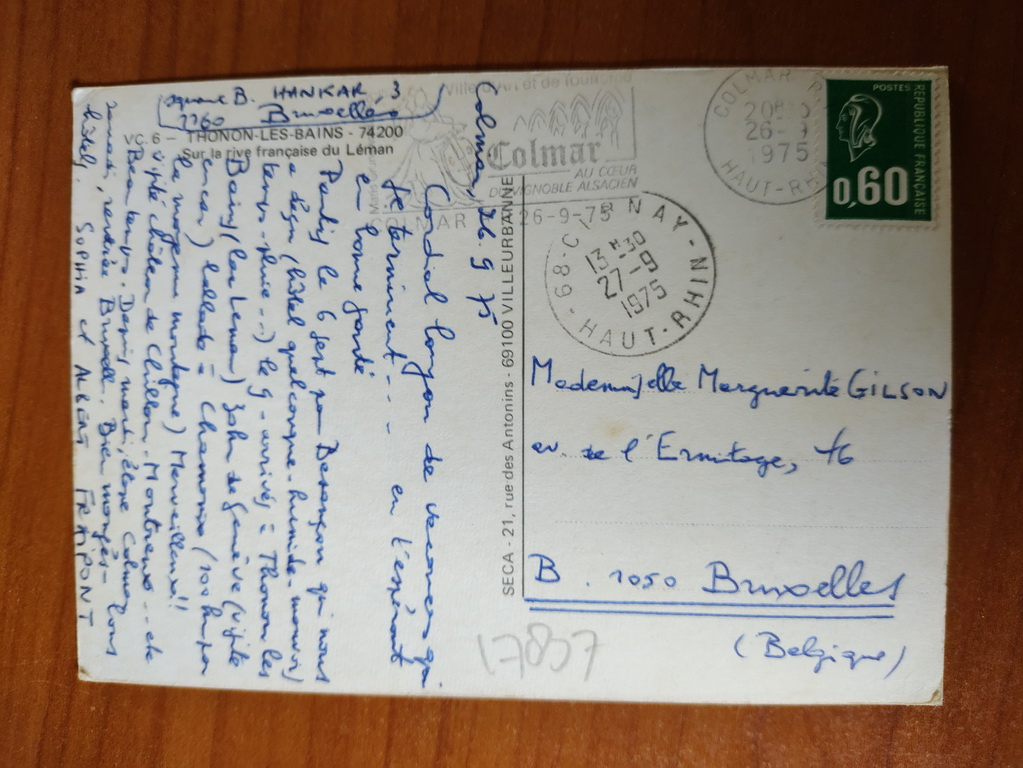 square B. HANKAR, 3
1160 Bruxelles
VC 6 - THONON-LES-BAINS - 74200
Sur la rive française du Léman
Colmar, 26.9.75
Cordial bonjour de vacances qui
se terminent... en l'espérant
en bonne santé
Partis le 6 sept pour Besançon qui nous
a déçu (hôtel quelconque - humide - mauvais
temps - pluie...) le 9 - arrivés = Thonon les
Bains (lac Léman)
ballade = Chamonix (100 km par
la moyenne montagne) Merveilleux!!
visité château de Chillon - Montreux... etc
Beau temps. Depuis mardi, à Colmar, tous
samedi, rentrée Bruxell. Bien mangés -
hôtel.
SOPHIA et ALBERT FRAIPONT
SECA - 21, rue des Antonins - 69100 VILLEURBANNE
Ville d'Art et de Tourisme
Colmar
AU CŒUR
DU VIGNOBLE ALSACIEN
COLMAR
26-9-75
COLMAR
26-9
1975
HAUT-RHIN
68-CERNAY-
13H30
27-9
1975
HAUT-RHIN
POSTES
REPUBLIQUE FRANÇAISE
0,60
Mademoiselle Marguerite GILSON
av. de l'Ermitage, 76
B. 1050 Bruxelles
(Belgique)
17837